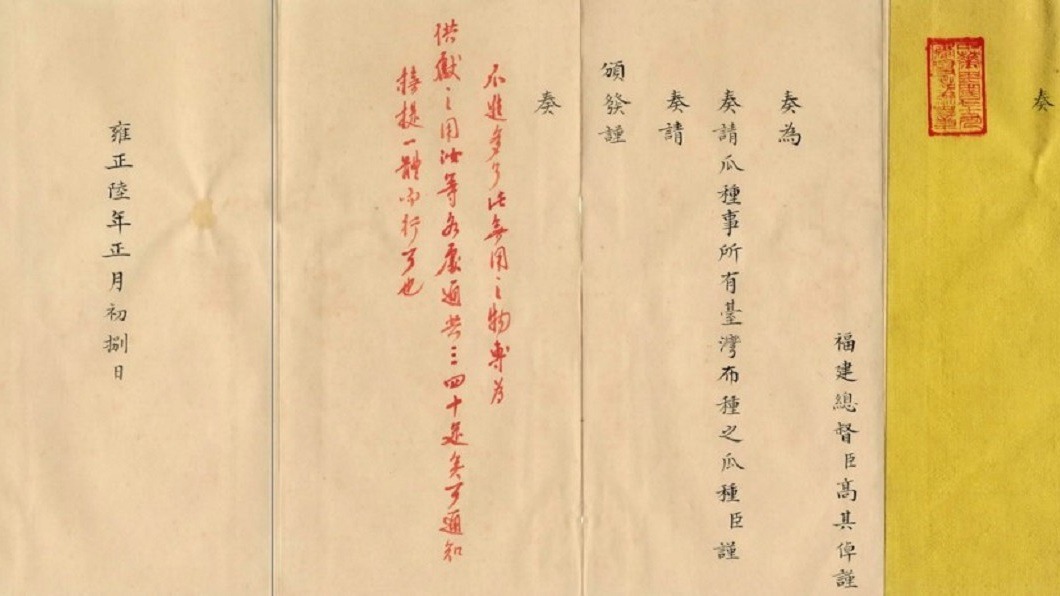 奏
福建總督臣高其倬謹
奏為
奏請瓜種事所有臺灣布種之瓜種臣謹
奏請
頒發謹
奏
不進多了此無用之物專為
供獻之用汝等各處通共三四十足矣可通知
提一體而行可也
雍正陸年正月初捌日